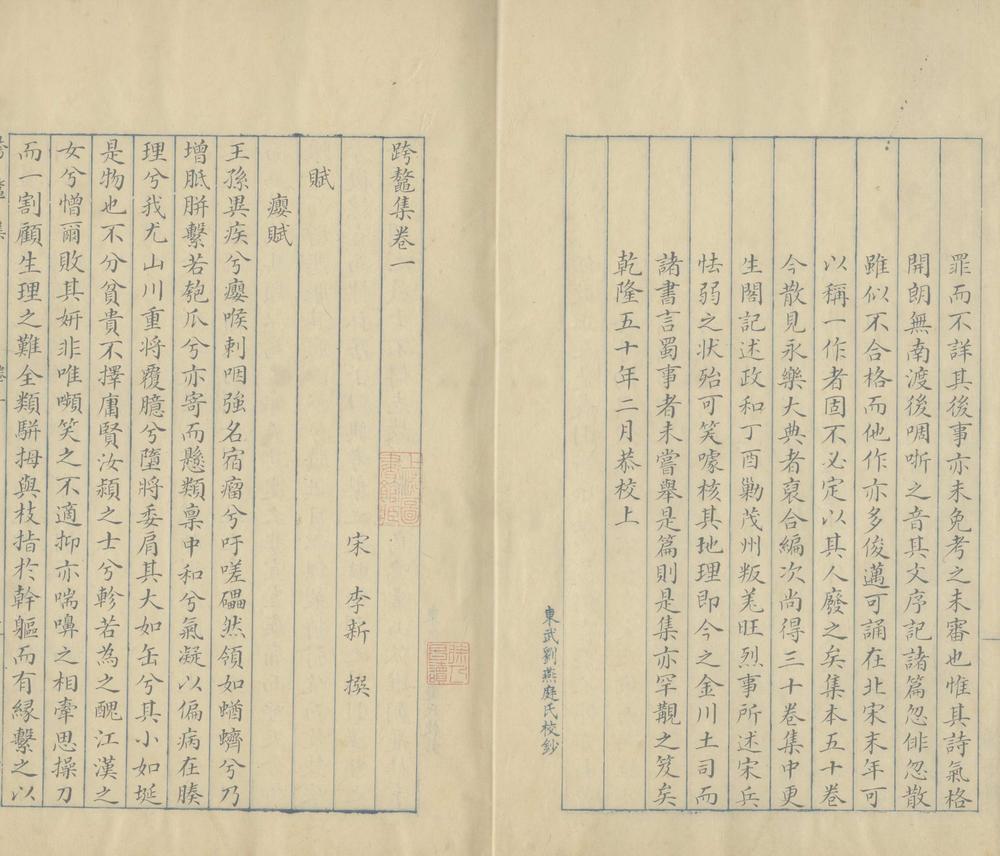 罪而不詳其後事亦未免考之未審也惟其詩氣格
開朗無南渡後啁哳之音其文序記諸篇忽俳忽散
雖似不合格而他作亦多俊邁可誦在北宋末年可
以稱一作者固不必定以其人廢之矣集本五十卷
今散見永樂大典者裒合編次尚得三十卷集中更
生閣記述政和丁酉勦茂州叛羗旺烈事所述宋兵
怯弱之狀殆可笑噱核其地理即今之金川土司而
諸書言蜀事者未嘗舉是篇則是集亦罕覯之笈矣
乾隆五十年二月恭校上
東武劉燕庭氏校鈔
跨鼇集卷一
宋 李新 撰
賦
癭賦
王孫異疾兮癭喉刺咽强名宿瘤兮吁嗟礧然領如蝤蠐兮乃
增胝胼繫若匏瓜兮亦寄而懸類稟中和兮氣凝以偏病在腠
理兮我尤山川重将覆臆兮墮将委肩其大如缶兮其小如埏
是物也不分貧貴不擇庸賢汝潁之士兮軫若為之醜江漢之
女兮憎爾敗其妍非唯嚬笑之不適抑亦喘嚊之相牽思操刀
而一割顧生理之難全類駢拇與枝指於幹軀而有緣繫之以